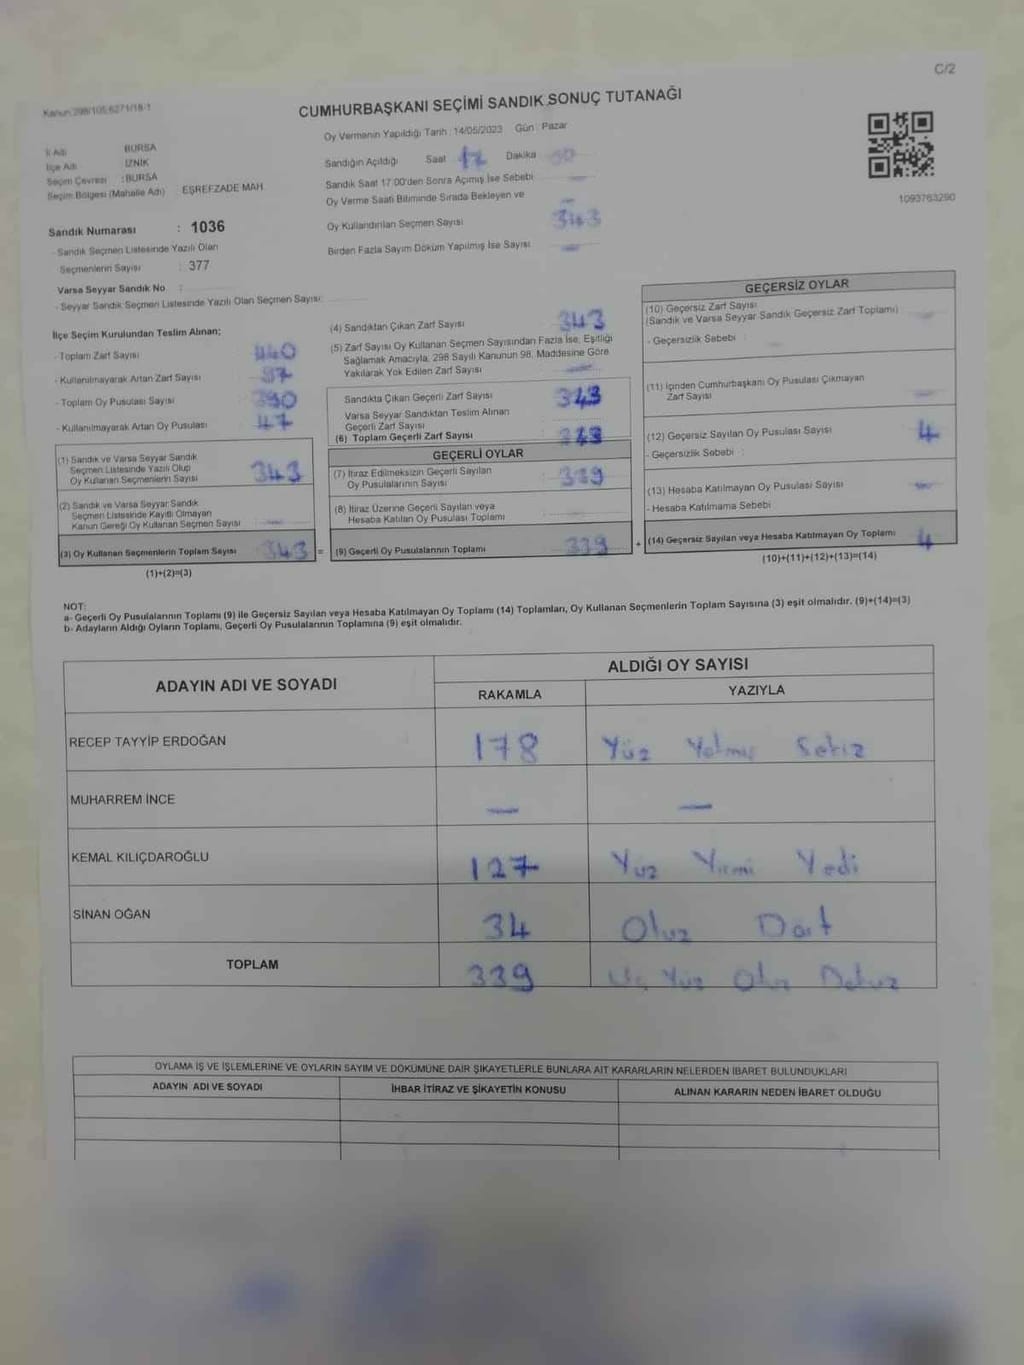 C/2
Kanun:298/105;6271/18-1
CUMHURBAŞKANI SEÇİMİ SANDIK SONUÇ TUTANAĞI
Oy Vermenin Yapıldığı Tarih : 14/05/2023 Gün : Pazar
İl Adı BURSA
İlçe Adı : İZNİK
Seçim Çevresi : BURSA
Seçim Bölgesi (Mahalle Adı) EŞREFZADE MAH.
Sandığın Açıldığı Saat 17 Dakika
Sandık Saat 17:00'den Sonra Açılmış İse Sebebi
Oy Verme Saati Bitiminde Sırada Bekleyen ve
Oy Kullandırılan Seçmen Sayısı 343
Birden Fazla Sayım Döküm Yapılmış İse Sayısı
1093763290
Sandık Numarası : 1036
- Sandık Seçmen Listesinde Yazılı Olan
Seçmenlerin Sayısı : 377
Varsa Seyyar Sandık No :
- Seyyar Sandık Seçmen Listesinde Yazılı Olan Seçmen Sayısı:
İlçe Seçim Kurulundan Teslim Alınan;
- Toplam Zarf Sayısı 440
- Kullanılmayarak Artan Zarf Sayısı 97
- Toplam Oy Pusulası Sayısı 390
- Kullanılmayarak Artan Oy Pusulası 47
(1) Sandık ve Varsa Seyyar Sandık
Seçmen Listesinde Yazılı Olup
Oy Kullanan Seçmenlerin Sayısı 343
(2) Sandık ve Varsa Seyyar Sandık
Seçmen Listesinde Kayıtlı Olmayan
Kanun Gereği Oy Kullanan Seçmen Sayısı —
(3) Oy Kullanan Seçmenlerin Toplam Sayısı 343 =
(1)+(2)=(3)
(4) Sandıktan Çıkan Zarf Sayısı 343
(5) Zarf Sayısı Oy Kullanan Seçmen Sayısından Fazla İse, Eşitliği
Sağlamak Amacıyla, 298 Sayılı Kanunun 98. Maddesine Göre
Yakılarak Yok Edilen Zarf Sayısı
Sandıkta Çıkan Geçerli Zarf Sayısı 343
Varsa Seyyar Sandıktan Teslim Alınan
Geçerli Zarf Sayısı
(6) Toplam Geçerli Zarf Sayısı 343
GEÇERLİ OYLAR
(7) İtiraz Edilmeksizin Geçerli Sayılan
Oy Pusulalarının Sayısı 339
(8) İtiraz Üzerine Geçerli Sayılan veya
Hesaba Katılan Oy Pusulası Toplamı
(9) Geçerli Oy Pusulalarının Toplamı 339 +
GEÇERSİZ OYLAR
(10) Geçersiz Zarf Sayısı
(Sandık ve Varsa Seyyar Sandık Geçersiz Zarf Toplamı)
- Geçersizlik Sebebi
(11) İçinden Cumhurbaşkanı Oy Pusulası Çıkmayan
Zarf Sayısı
(12) Geçersiz Sayılan Oy Pusulası Sayısı 4
- Geçersizlik Sebebi :
(13) Hesaba Katılmayan Oy Pusulası Sayısı
- Hesaba Katılmama Sebebi
(14) Geçersiz Sayılan veya Hesaba Katılmayan Oy Toplamı 4
(10)+(11)+(12)+(13)=(14)
NOT:
a- Geçerli Oy Pusulalarının Toplamı (9) ile Geçersiz Sayılan veya Hesaba Katılmayan Oy Toplamı (14) Toplamları, Oy Kullanan Seçmenlerin Toplam Sayısına (3) eşit olmalıdır. (9)+(14)=(3)
b- Adayların Aldığı Oyların Toplamı, Geçerli Oy Pusulalarının Toplamına (9) eşit olmalıdır.
ADAYIN ADI VE SOYADI ALDIĞI OY SAYISI
RAKAMLA YAZIYLA
RECEP TAYYİP ERDOĞAN 178 Yüz Yetmiş Sekiz
MUHARREM İNCE — —
KEMAL KILIÇDAROĞLU 127 Yüz Yirmi Yedi
SİNAN OĞAN 34 Otuz Dört
TOPLAM 339 Üç Yüz Otuz Dokuz
OYLAMA İŞ VE İŞLEMLERİNE VE OYLARIN SAYIM VE DÖKÜMÜNE DAİR ŞİKAYETLERLE BUNLARA AİT KARARLARIN NELERDEN İBARET BULUNDUKLARI
ADAYIN ADI VE SOYADI İHBAR İTİRAZ VE ŞİKAYETİN KONUSU ALINAN KARARIN NEDEN İBARET OLDUĞU